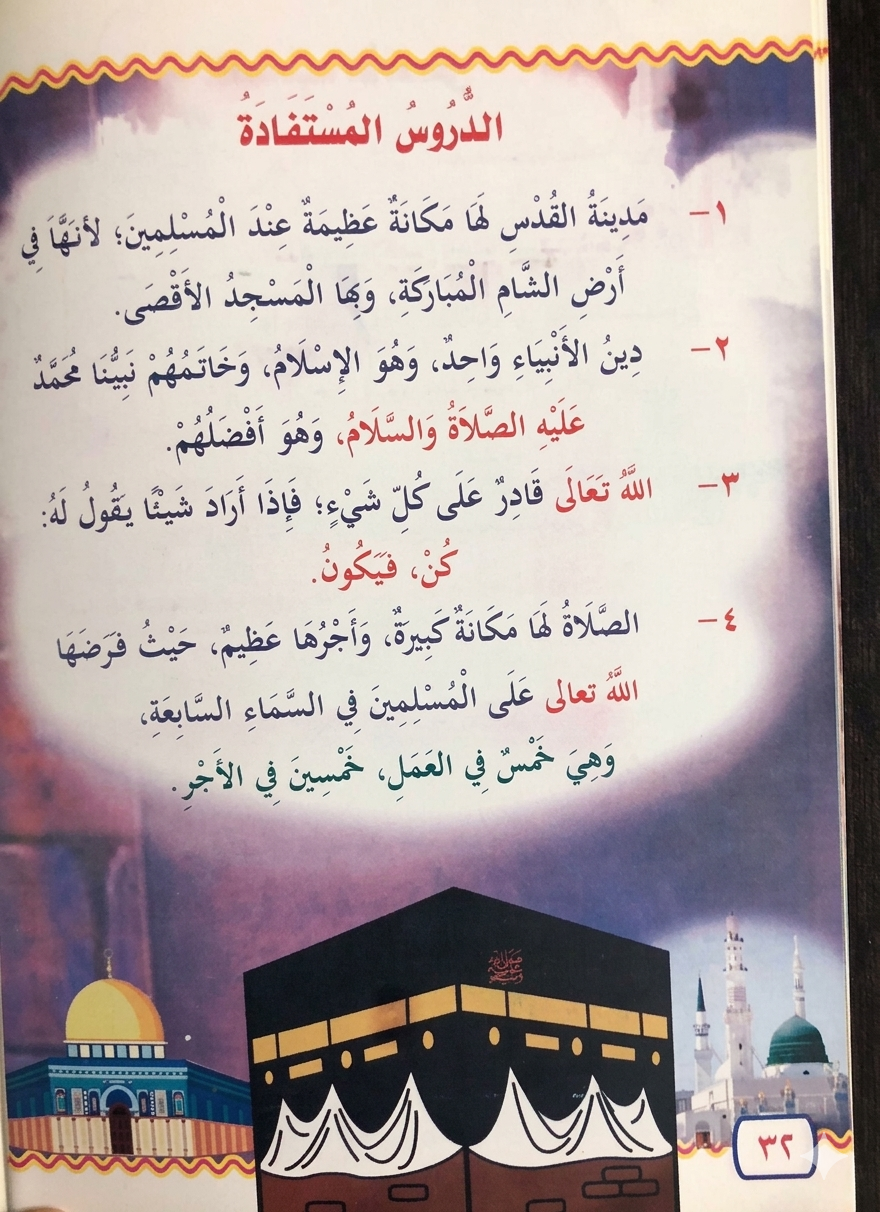 الدُّرُوسُ المُسْتَفَادَةُ
١- مَدِينَةُ القُدْسِ لَهَا مَكَانَةٌ عَظِيمَةٌ عِنْدَ الْمُسْلِمِينَ؛ لأنهَّاَ فِي
أَرْضِ الشَّامِ الْمُبَارَكَةِ، وَبِهَا الْمَسْجِدُ الأَقْصَى.
٢- دِينُ الأَنْبِيَاءِ وَاحِدٌ، وَهُوَ الإِسْلَامُ، وَخَاتَمُهُمْ نَبِيُّنَا مُحَمَّدٌ
عَلَيْهِ الصَّلَاةُ وَالسَّلَامُ، وَهُوَ أَفْضَلُهُمْ.
٣- اللَّهُ تَعَالَى قَادِرٌ عَلَى كُلِّ شَيْءٍ؛ فَإِذَا أَرَادَ شَيْئًا يَقُولُ لَهُ:
كُنْ، فَيَكُونُ.
٤- الصَّلَاةُ لَهَا مَكَانَةٌ كَبِيرَةٌ، وَأَجْرُهَا عَظِيمٌ، حَيْثُ فَرَضَهَا
اللَّهُ تعالى عَلَى الْمُسْلِمِينَ فِي السَّمَاءِ السَّابِعَةِ،
وَهِيَ خَمْسٌ فِي العَمَلِ، خَمْسِينَ فِي الأَجْرِ.
٣٢